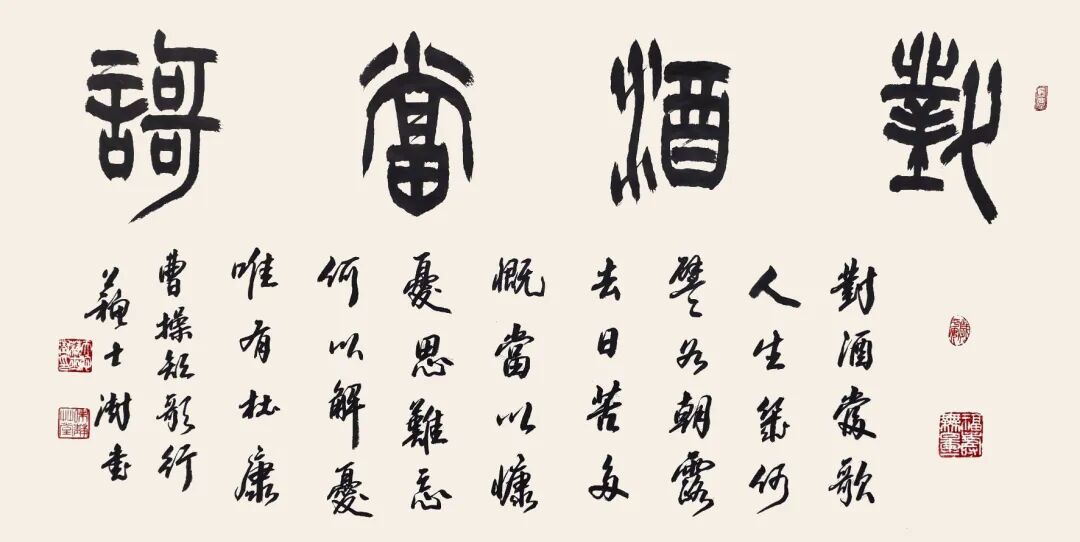 對酒當謌
對酒當歌
人生幾何
譬如朝露
去日苦多
慨當以慷
憂思難忘
何以解憂
唯有杜康
曹操短歌行
蘇士澍書
福壽無量